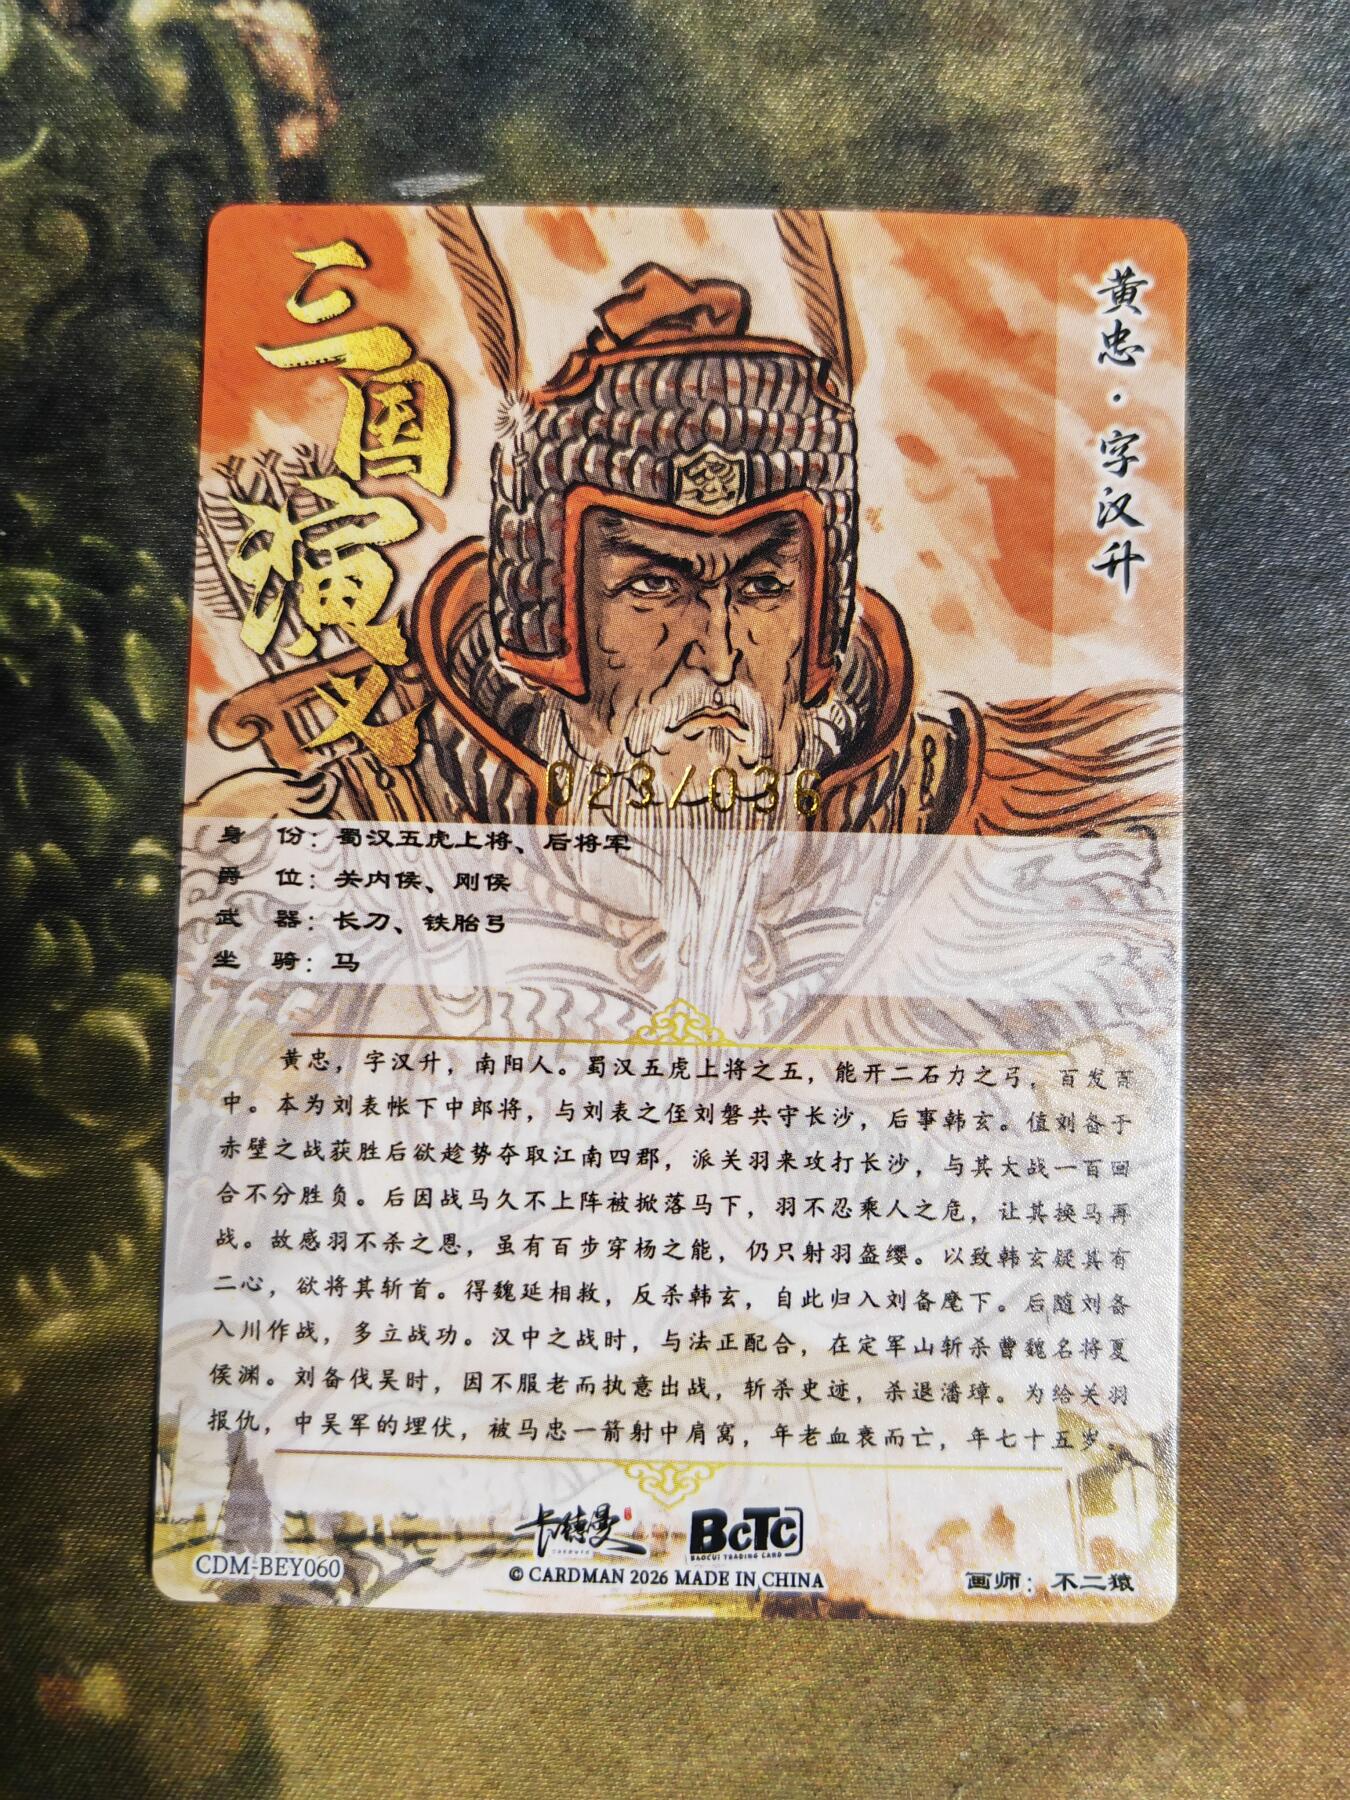 三国演义
黄忠·字汉升
023/036
身 份：蜀汉五虎上将、后将军
爵 位：关内侯、刚侯
武 器：长刀、铁胎弓
坐 骑：马
黄忠，字汉升，南阳人。蜀汉五虎上将之五，能开二石力之弓，百发百
中。本为刘表帐下中郎将，与刘表之侄刘磐共守长沙，后事韩玄。值刘备于
赤壁之战获胜后欲趁势夺取江南四郡，派关羽来攻打长沙，与其大战一百回
合不分胜负。后因战马久不上阵被掀落马下，羽不忍乘人之危，让其换马再
战。故感羽不杀之恩，虽有百步穿杨之能，仍只射羽盔缨。以致韩玄疑其有
二心，欲将其斩首。得魏延相救，反杀韩玄，自此归入刘备麾下。后随刘备
入川作战，多立战功。汉中之战时，与法正配合，在定军山斩杀曹魏名将夏
侯渊。刘备伐吴时，因不服老而执意出战，斩杀史迹，杀退潘璋。为给关羽
报仇，中吴军的埋伏，被马忠一箭射中肩窝，年老血衰而亡，年七十五岁。
卡德曼
BCTC
BAOCUI TRADING CARD
CDM-BEY060
© CARDMAN 2026 MADE IN CHINA
画师：不二猿